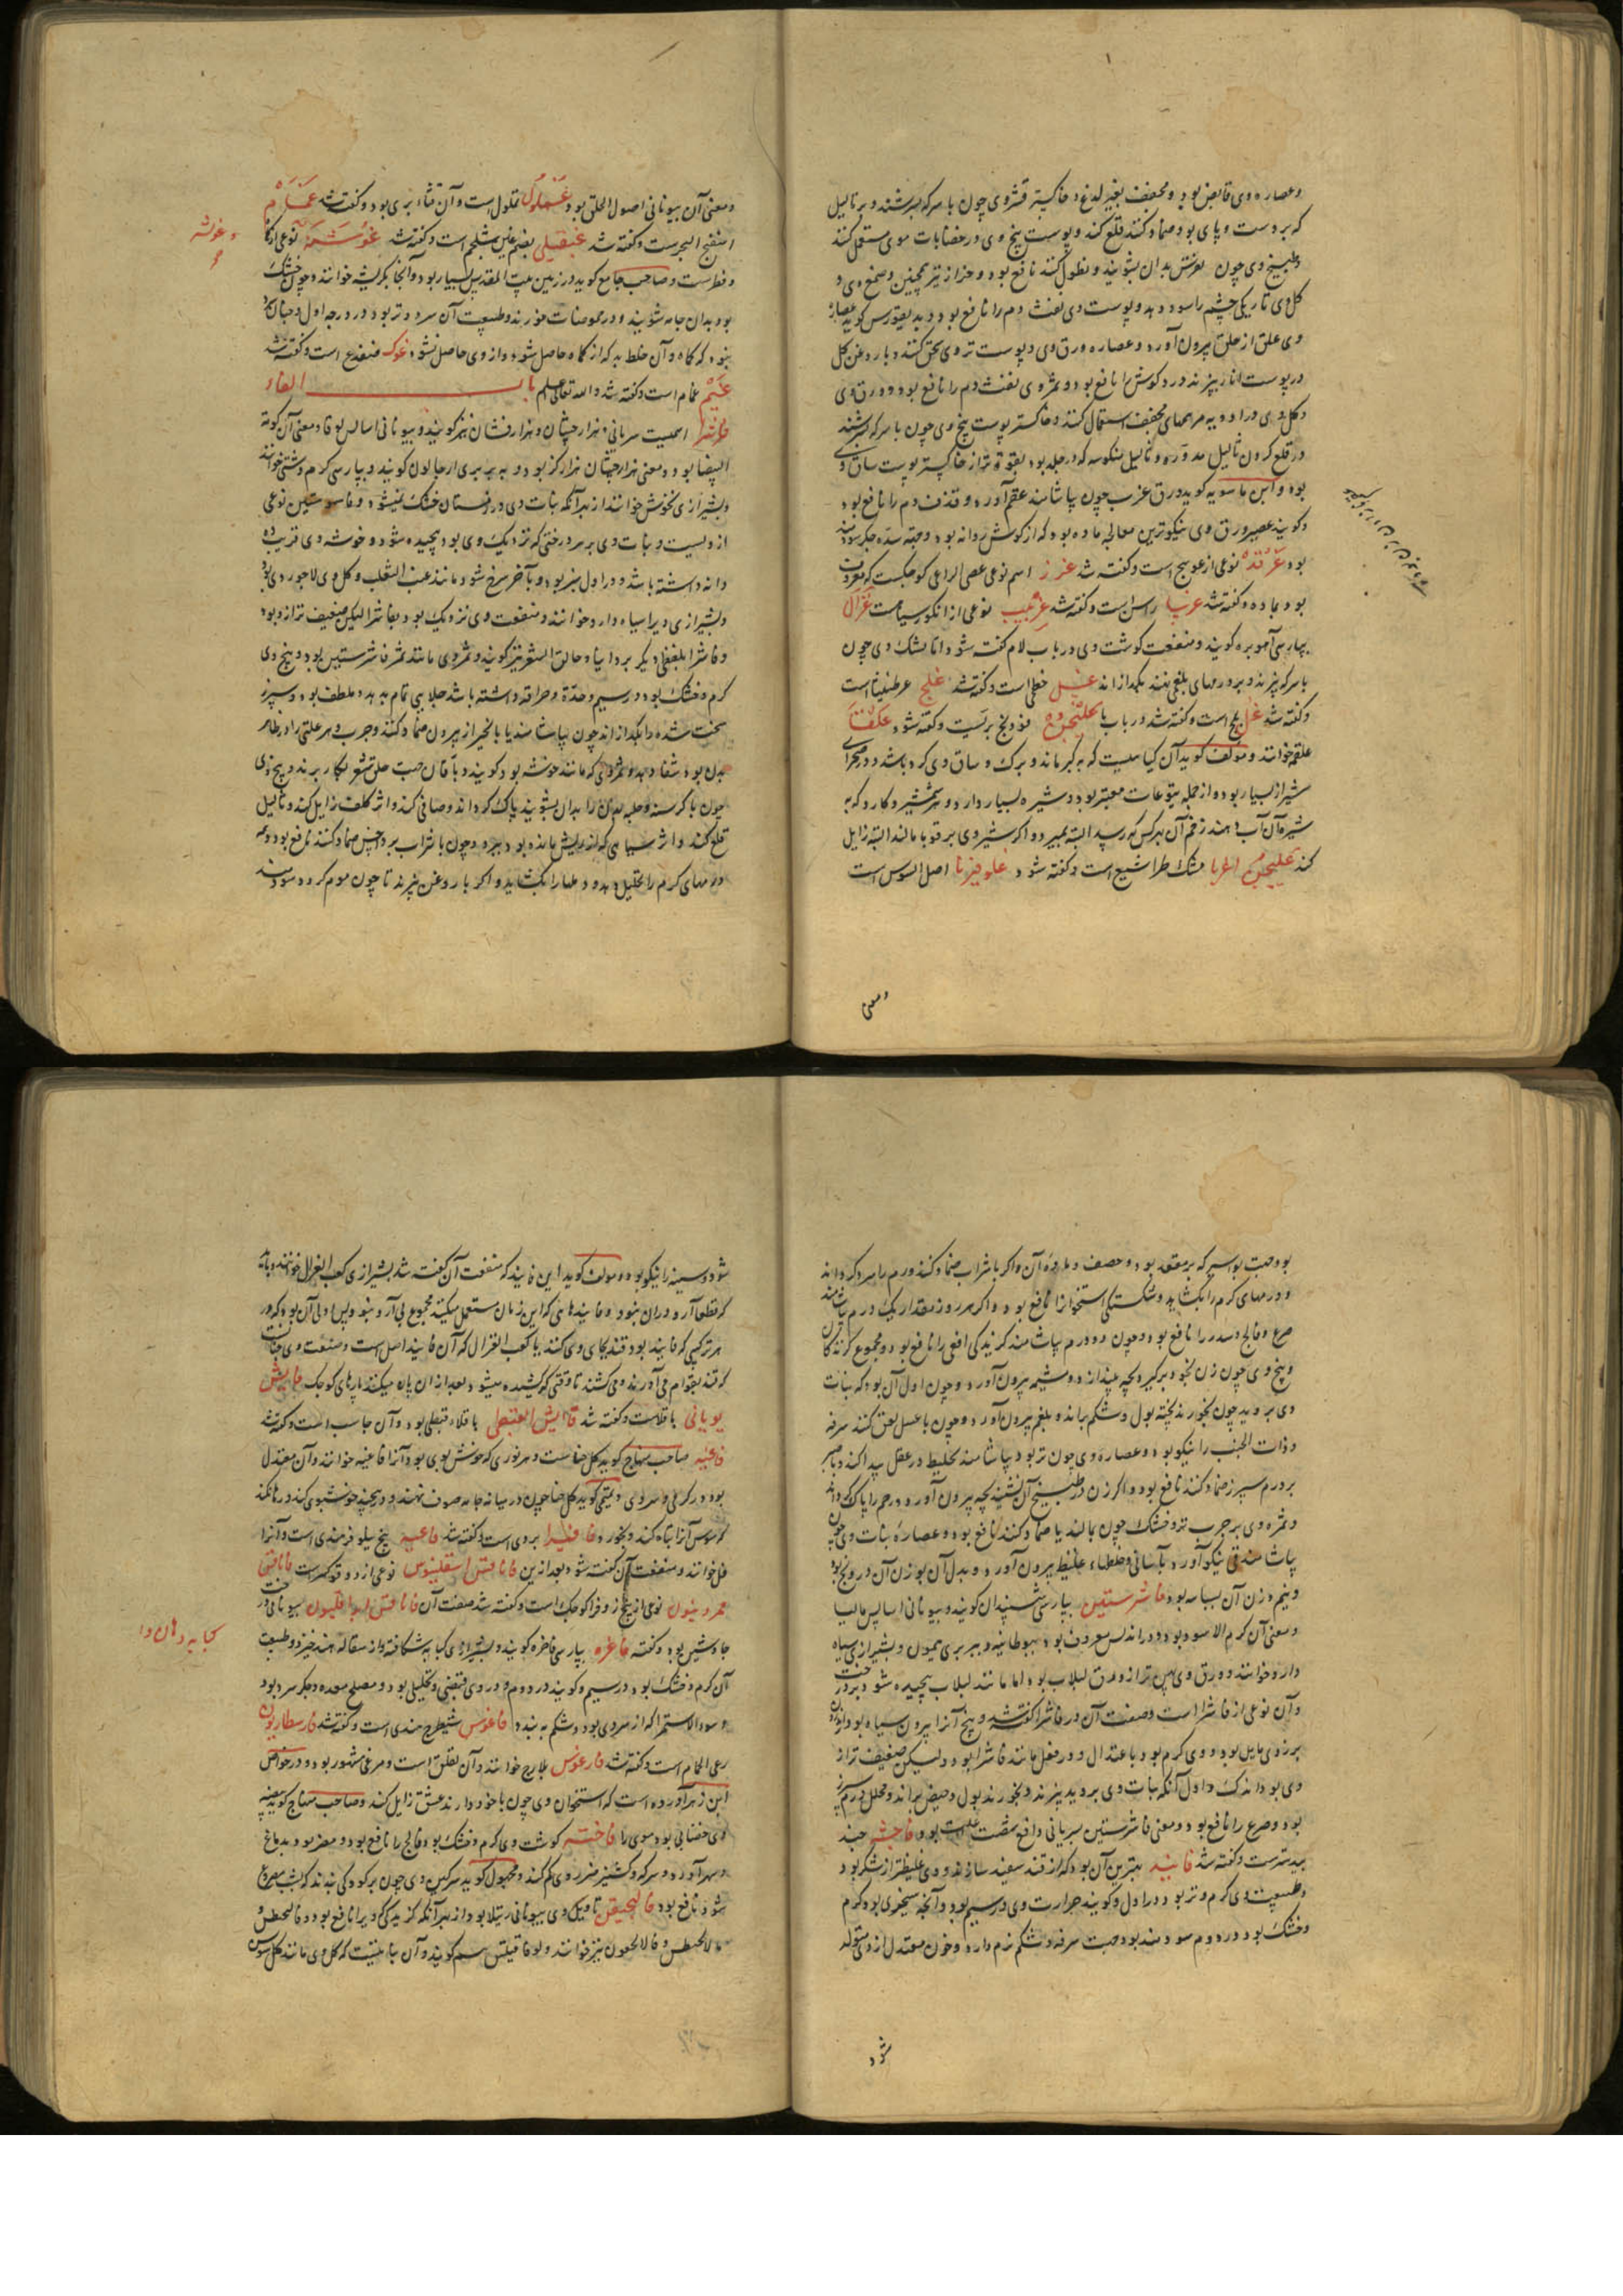 وعصاره وی قابض بود و مجفف بغیر لدغ و خاکستر قشر وی چون با سرکه بسرشند و بر ثالیل
که بر دست و پای بود ضماد کنند قلع کند و پوست بیخ وی در خضابات موی مستعمل کنند
وطبیخ وی چون بدان بشویند و نطول کنند نافع بود و حزاز نیز همچنین و صمغ وی و
کل وی تاریکی چشم را سود دهد و پوست وی نفث دم را نافع بود و دیسقوریدوس کوید عصاره
وی علق از حلق بیرون آورد و عصاره ورق وی و پوست تر وی سحق کنند و با روغن کل
در پوست انار بپزند درد کوش را نافع بود و ثمر وی نفث دم را نافع بود و ورق وی
وکل وی در ادویه مرهمهای مجفف استعمال کنند و خاکستر پوست بیخ وی چون با سرکه بسرشند
در قلع کردن ثالیل مدوره و ثالیل منکوسه که در جلد بود بقوة تر از خاکستر پوست ساق وی
بود و ابن ماسویه کوید ورق غرب چون بیاشامند عقم آورد و قذف دم را نافع بود
وکویند عصیر ورق وی نیکوترین معالجه ماده بود که از کوش روانه بود و جهة سده جکر سودمند
بود غرقد نوعی از عوسج است و کفته شد غرز اسم نوعی عصی الراعی کوچکست که معروف
بود بماده و کفته شد غرنبا راسن است و کفته شد غربیب نوعی از انکور سیاهست غزال
بپارسی آهو بره کویند و منفعت کوشت وی در باب لام کفته شود اما پشک وی چون
با سرکه بپزند و بر ورمهای بلغمی نهند بکدازاند غسل خطمی است و کفته شد غلج عرطنیثا است
وکفته شد غلیجن بری است و کفته شود غلقی
علقم خوانند و مولف کوید آن کیاهیست که به کبر ماند و برک و ساق وی کرد باشد و در صحرای
شیراز بسیار بود و از جمله یتوعات معتبر بود و شیره بسیار دارد و هر شمشیر و کارد که به
شیره آن آب دهند زخم آن بهر کس که رسد البته بمیرد و اکر شیر وی بر قوبا مالند البته زایل
کند غلیجن اغریا مشک طرامشیع است و کفته شود غلوفیریا اصل السوس است
ومعنی
ومعنی آن بیونانی اصول الحلق بود غملول قملول است و آن قثاء بری بود و کفته شد غمام
اسفنج البحرست و کفته شد غنقیلی بضم غین شلجم است و کفته شد غوشنه نوعی از کما
وغوشنه
وفطرست و صاحب جامع کوید در زمین بیت المقدس بسیار بود و آنجا بکریشه خوانند و چون خشک
بود بدان جامه شویند و در حموضات خورند و طبیعت آن سرد و تر بود در درجه اول
نبود که کماه و آن خلط بد که از کماه حاصل شود از وی حاصل نشود غوک ضفدع است و کفته شد
غیم غمام است و کفته شد والله تعالی اعلم باب الفاء
فاشرا اسمیست سریانی و هزار جشان و هزار فشان نیز کویند و بیونانی امبالس لوقا و معنی آن کرمة
البیضا بود و معنی هزار جشان هزار کز بود و به بربری ارجالون کویند و بپارسی کرم دشتی خوانند
وبشیرازی نخوش خوانند از بهر آنکه نبات وی در زمستان خشک نمیشود و فاشرستین نوعی
از ویست و نبات وی بر سر درختی که نزدیک وی بود پیچیده شود و خوشه وی قریب ده
دانه داشته باشد و در اول سبز بود و بآخر سرخ شود مانند عنب الثعلب و کل وی لاجوردی بود
وبشیرازی ویرا سیاه دارو خوانند و منفعت وی نزدیک بود بفاشرا لیکن ضعیف تر از وی بود
وفاشرا بلفظی دیکر بردانیا و حالق الشعر نیز کویند و ثمر وی مانند ثمر فاشرستین بود و بیخ وی
کرم و خشک بود در سیم و حدة و حرافه داشته باشد جلایی تمام بدهد و ملطف بود و سپرز
سخت شده را بکدازاند چون بیاشامند یا با انجیر از بیرون ضماد کنند و جرب و هر علتی را در ظاهر
بدن بود شفا دهد و ثمر وی که مانند خوشه بود کویند دباغان جهت حلق شعر بکار برند و بیخ وی
چون با کرسنه و حلبه بدن را بدان بشویند پاک کرداند و صافی کند و اثر کلف زایل کند و ثالیل
قلع کند و اثر سیاهی که از ریش مانده بود ببرد و چون با شراب بر داحس ضماد کنند نافع بود و همه
ورمهای کرم را تحلیل دهد و دملها را بکشاید و اکر با روغن بپزند تا چون موم کردد سودمند
بود جهت بواسیر که بر مقعد بود و آن و اکر با شراب ضماد کنند ورم را سرد کرداند
و ورمهای کرم را بکشاید و شکستکی استخوانرا نافع بود و اکر هر روز مقدار یک درم بیاشامند
صرع و فالج و سدر را نافع بود و چون دو درم بیاشامند کزیدکی افعی را نافع بود و مجموع کزندکان
وبیخ وی چون زن بخود برکیرد بچه بیندازد و مشیمه بیرون آورد و چون اول آن بود که نبات
وی بروید چون بخورند پخته بول و شکم براند و بلغم بیرون آورد و چون با عسل لعق کنند سرفه
وذات الجنب را نیکو بود و عصاره وی چون تر بود بیاشامند تخلیط در عقل پیدا کند
بر ورم سپرز ضماد کنند نافع بود و اکر زن در طبیخ آن نشیند بچه بیرون آورد و رحم را پاک کرداند
وثمره وی بر جرب تر و خشک چون بمالند یا ضماد کنند نافع بود و عصاره نبات وی چون
بیاشامند قی نیکو آورد بآسانی و خلطهاء غلیظ بیرون آورد و بدل آن بوزن آن درونج بود
ونیم وزن آن بسباسه بود فاشرستین بپارسی ششبندان کویند و بیونانی امبالس مالینا
ومعنی آن کرم الاسود بود و در اندلس معروف بود ببوطانیه و ببربری میمون و بشیرازی سیاه
دارو خوانند و ورق وی پهن تر از ورق لبلاب بود اما مانند لبلاب پیچیده شود بر درخت
وآن نوعی از فاشرا است و صفت آن در فاشرا کفته شد و بیخ آنرا بیرون سیاه بود و اندرون
بزردی مایل بود و وی کرم بود با اعتدال و در فعل مانند فاشرا بود ولیکن ضعیف تر از
وی بود اندک و اول آنکه نبات وی بروید بپزند و بخورند بول و حیض براند و محلل ورم سپرز
بود و صرع را نافع بود و معنی فاشرستین سریانی دافع شصت علت بود فاحشه جند
بیدسترست و کفته شد فانید بهترین آن بود که از قند سفید سازند و وی غلیظتر از شکر بود
وطبیعت وی کرم و تر بود در اول و کویند حرارت وی در سیم بود و آنچه سنجری بود کرم
وخشک بود در دوم سودمند بود جهت سرفه و شکم نرم دارد و خون معتدل از وی متولد
شود
شود و سینه را نیکو بود و مولف کوید این فانید که منفعت آن کفته شد بشیرازی کعب الغزال خوانند و باید
که قطعا آرد در آن نبود و فانیدهائی که این زمان مستعمل میکنند مجموع بی آرد نبود پس اولی آن بود که در
هر ترکیبی که فانید بود قند بجای وی کنند یا کعب الغزال که آن فانید اصل است و صنعت وی چنانست
که قند بقوام می آورند و می کشند تا وقتی که کشیده میشود بعد از آن پاره میکنند پارهای کوچک فابش
یونانی باقلاست و کفته شد فابش القبطی باقلاء قبطی بود و آن جامسه است و کفته شد
فاغیه صاحب منهاج کوید کل حناست و هر نوری که خوش بوی بود آنرا فاغیه خوانند و آن معتدل
بود در کرمی و سردی و تمیمی کوید کل حنا چون در میانه جامه صوف نهند و در پیچند خوشبوی کند و رها نکند
که سوس آنرا تباه کند و بخورد فافلیرا بردی است و کفته شد فاغیه بیخ نیلوفر هندی است و آنرا
فل خوانند و منفعت آن کفته شود بعد ازین فاناقس اسقلینوس نوعی از دوقو کوهیست فاناقس
خیرونیون نوعی از زوفرا کوچک است و کفته شد صفت آن فاناقس ابراقلیون بیونانی درخت
جاوشیر بود و کفته فاغره بپارسی فاخره کویند و بشیرازی کبابه شکافته و از سقاله هند خیزد و طبیعت
کبابه دهان وا
آن کرم و خشک بود در سیم و کویند در دوم و در وی قبضی و تحلیلی بود و مصلح معده و جکر سرد بود
وسوء الاستمرا که از سردی بود و شکم به بندد فاغوس شیطرج هندی است و کفته شد فارسطاریون
رعی الحمام است و کفته شد فارغوس بلارج خوانند و آن لقلق است و مرغی مشهور بود و در خواص
ابن زهر آورده است که استخوان وی چون با خود دارند عشق زایل کند و صاحب منهاج کوید بیضه
وی خضابی بود موی را فاخته کوشت وی کرم و خشک بود فالج را نافع بود و مضر بود بدماغ
وسهر آورد و سرکه و کشنیز ضرر وی کم کند و مجهول کوید سرکین وی چون بر کودکی بندند که شب مصروع
شود نافع بود فالنجیقن تاویل وی بیونانی رتیلا بود از بهر آنکه کزیدکی ویرا نافع بود و فالنجطس و
فالالنجطس و فالالنجعون نیز خوانند و لوقاقیلس سم کویند و آن نباتیست که کل وی مانند کل سوسن